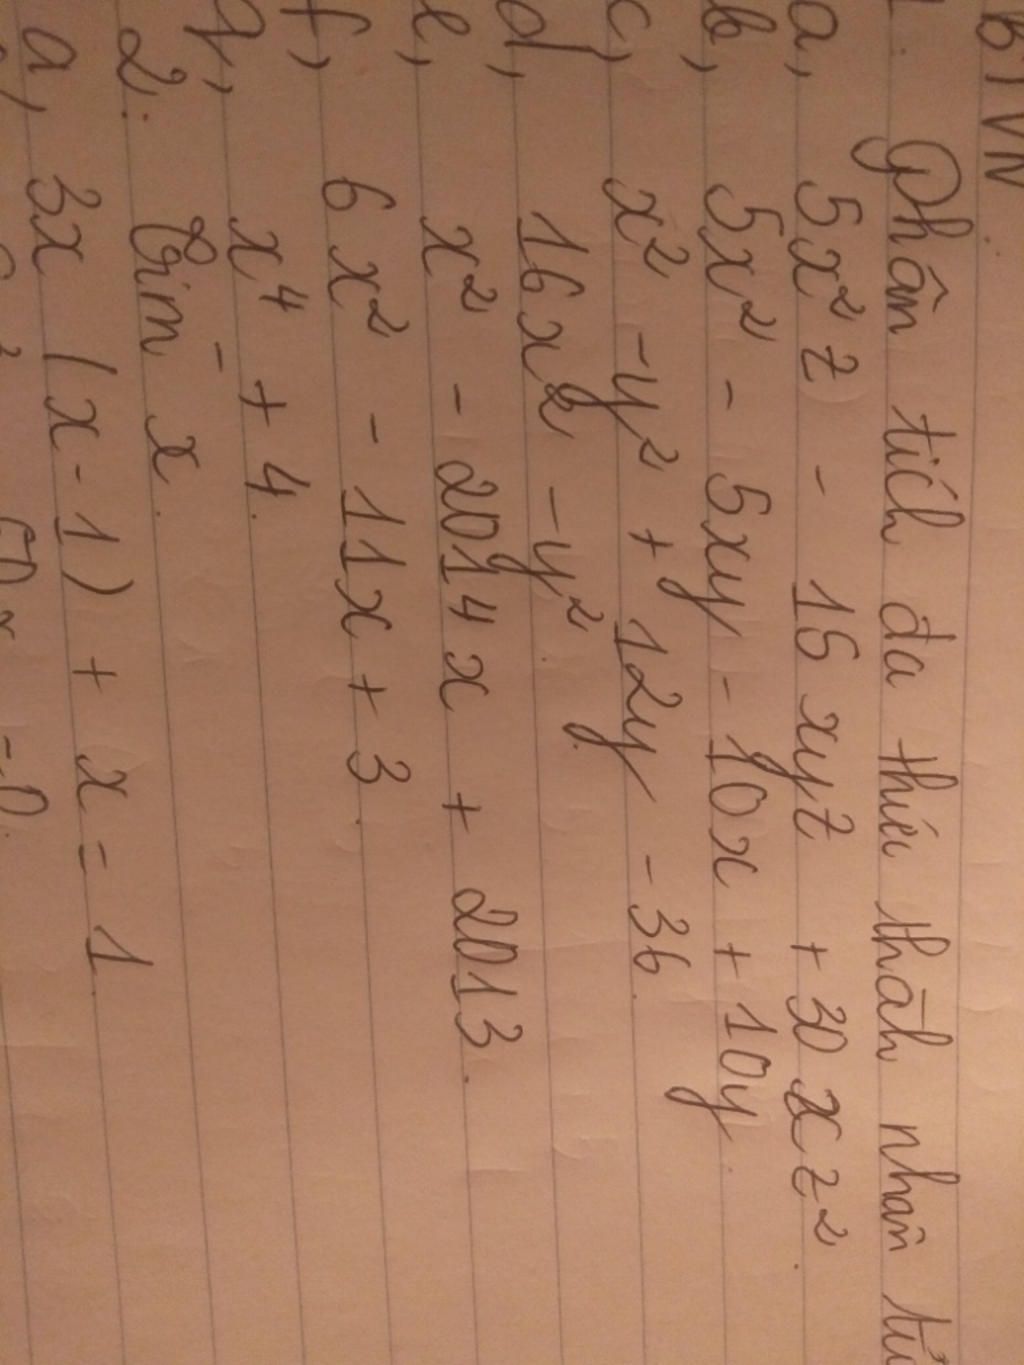 BTVN
1. Phân tích đa thức thành nhân tử
a, 5x²z - 15xyz + 30xz².
b, 5x² - 5xy - 10x + 10y
c, x² - y² + 12y - 36.
d, 16x² - y².
e, x² - 2014x + 2013.
f, 6x² - 11x + 3.
g, x⁴ + 4.
2. Tìm x.
a, 3x (x-1) + x = 1.
= 0.